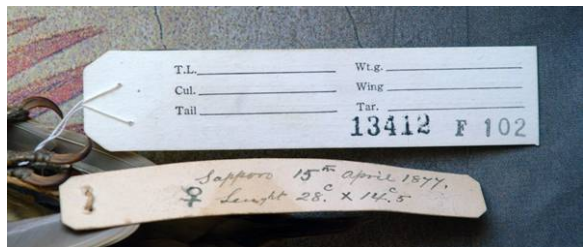 T.L. Wt.g.
Cul. Wing
Tail Tar.
13412 F 102
Sapporo 15th April 1877.
♀ Lenght 28.c X 14.c5